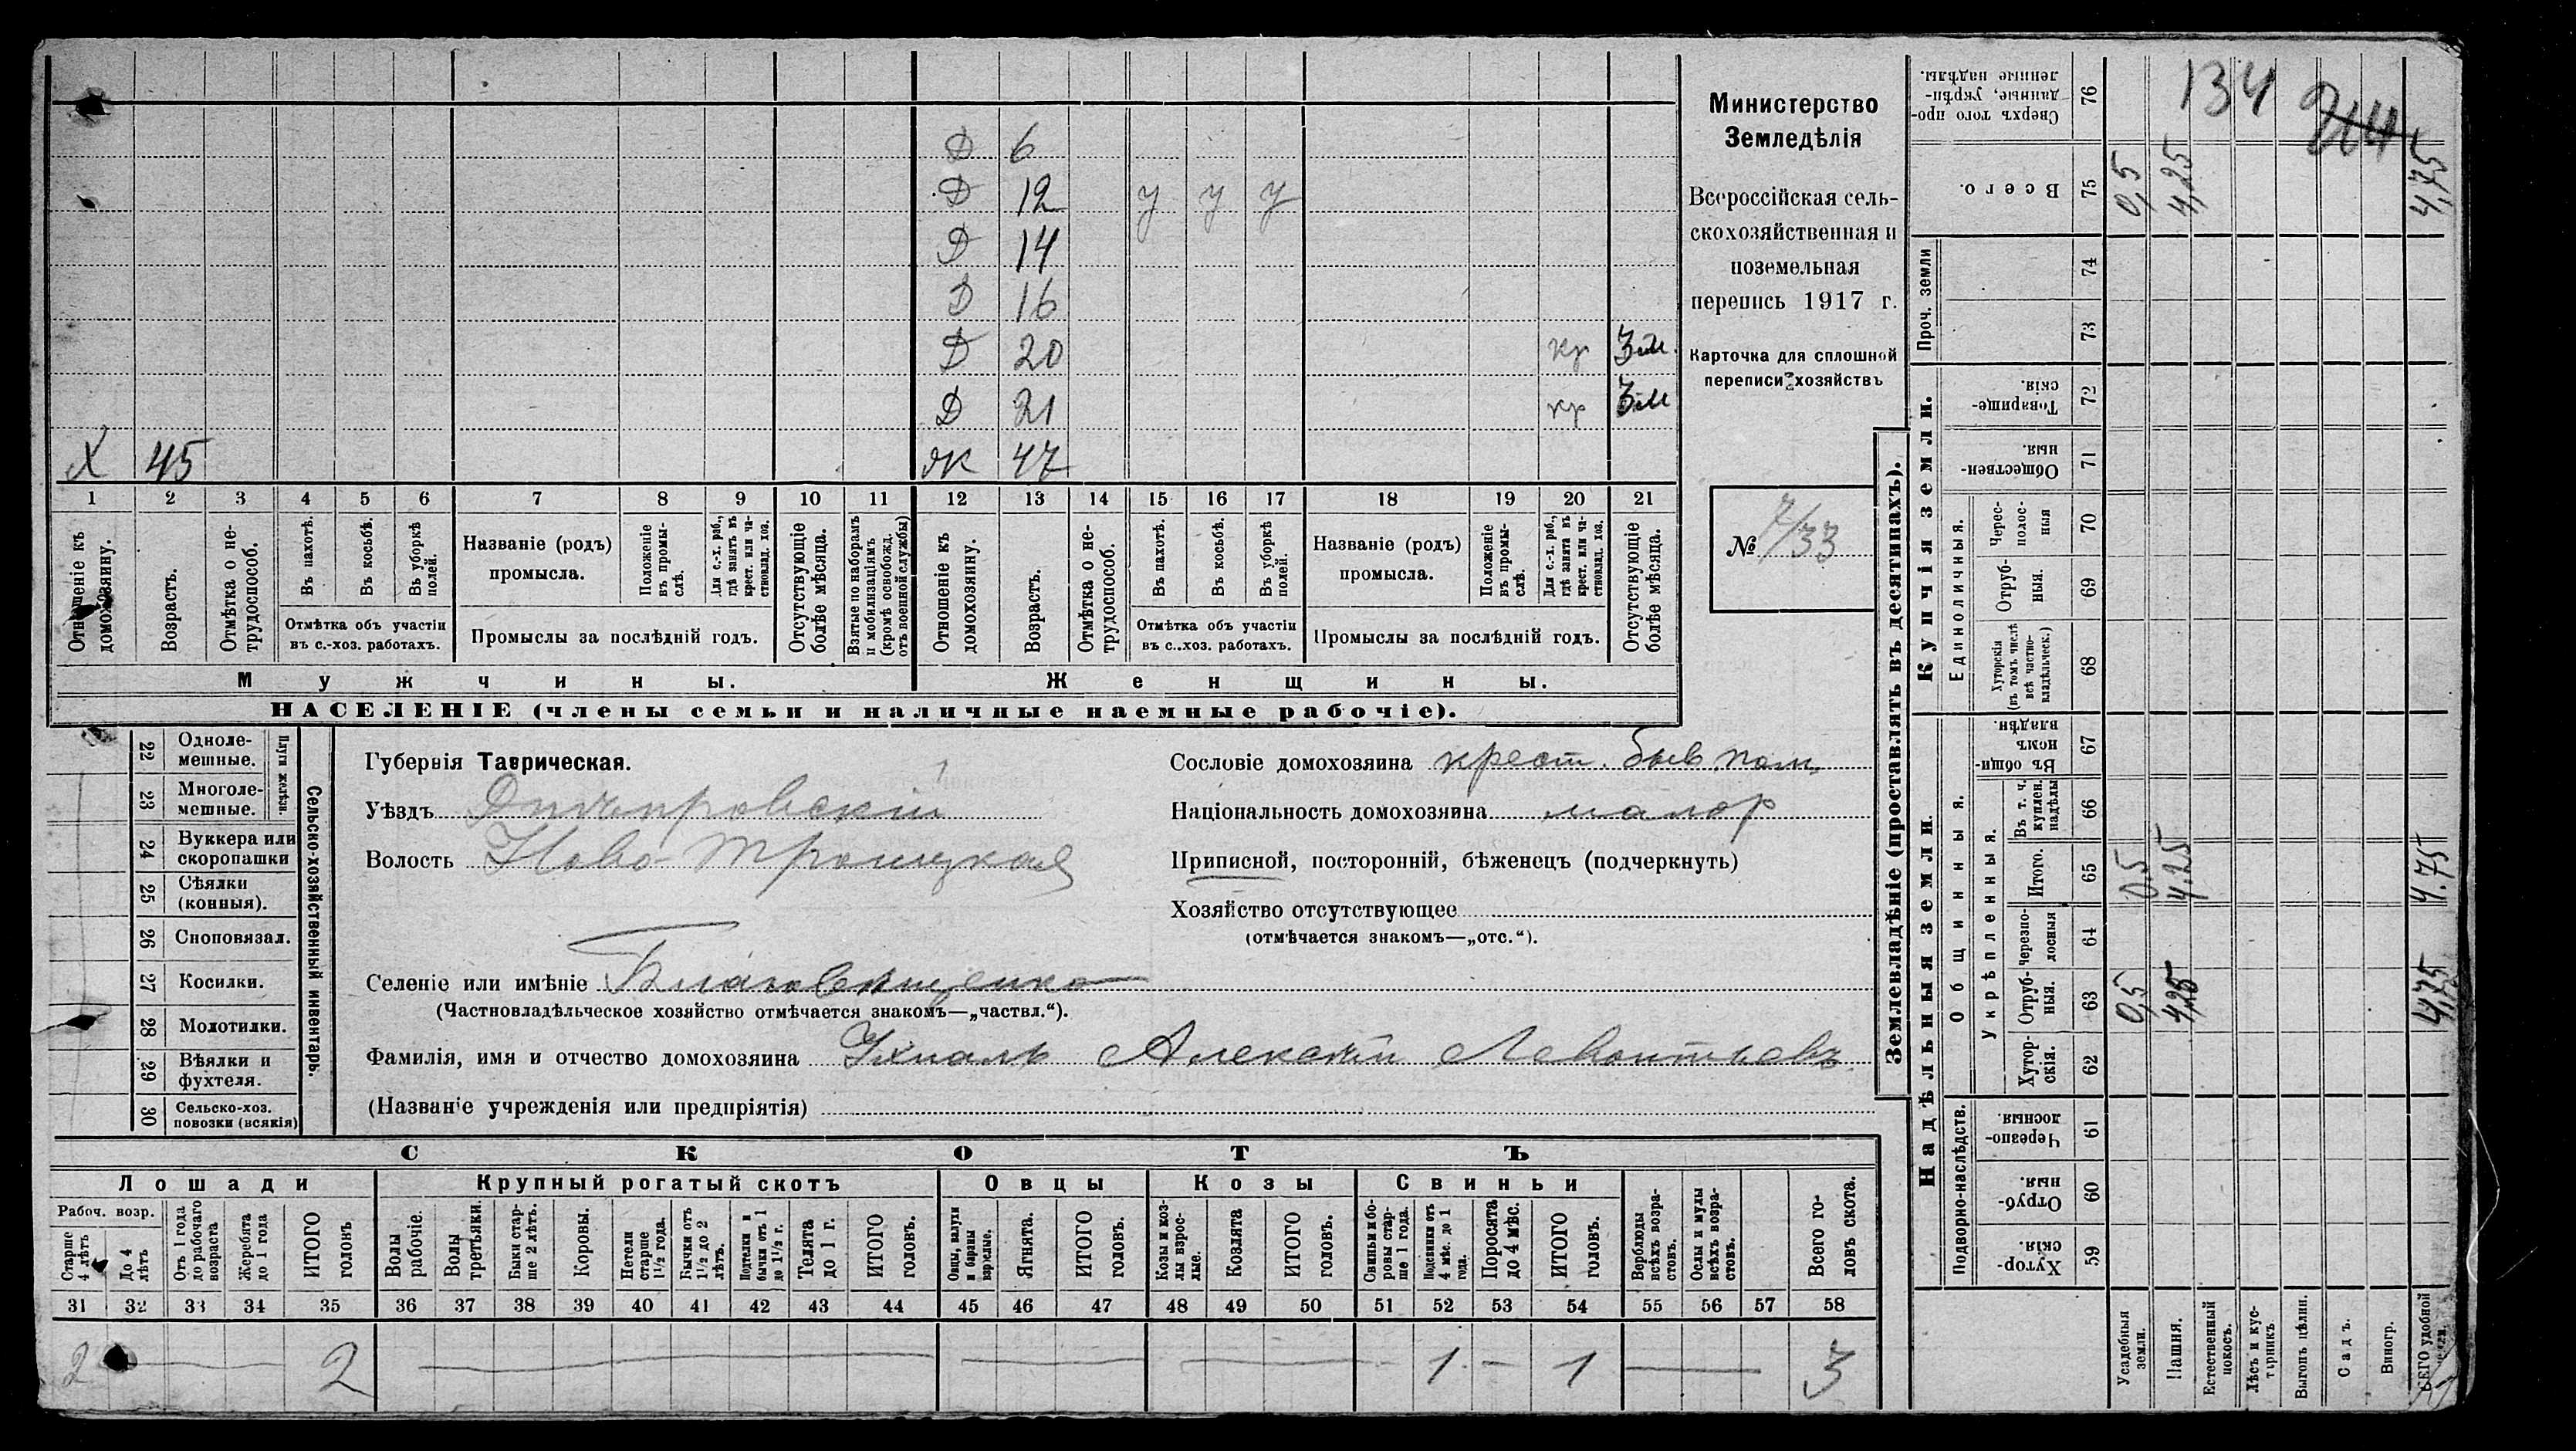 Д 6
Д 12 у у у
Д 14
Д 16
Д 20 кр 3 м.
Д 21 кр 3 м
Х 45 Ж 47
1 2 3 4 5 6 7 8 9 10 11 12 13 14 15 16 17 18 19 20 21
Отношеніе къ домохозяину.
Возрастъ.
Отмѣтка о нетрудоспособ.
Въ пахотѣ.
Въ косьбѣ.
Въ уборкѣ полей.
Отмѣтка объ участіи въ с.-хоз. работахъ.
Названіе (родъ) промысла.
Положеніе въ промыслѣ.
Для с.-х. раб., гдѣ занятъ въ крест. или частновлад. хоз.
Промыслы за послѣдній годъ.
Отсутствующіе болѣе мѣсяца.
Взятые по наборамъ и мобилизаціямъ (кромѣ освобожд. отъ военной службы)
Отношеніе къ домохозяину.
Возрастъ.
Отмѣтка о нетрудоспособ.
Въ пахотѣ.
Въ косьбѣ.
Въ уборкѣ полей.
Отмѣтка объ участіи въ с..хоз. работахъ.
Названіе (родъ) промысла.
Положеніе въ промыслѣ.
Для с.-х. раб., гдѣ занята въ крест. или частновлад. хоз.
Промыслы за послѣдній годъ.
Отсутствующіе болѣе мѣсяца.
Мужчины.
Женщины.
НАСЕЛЕНІЕ (члены семьи и наличные наемные рабочіе).
Министерство
Земледѣлія
Всероссійская сель-
скохозяйственная и
поземельная
перепись 1917 г.
Карточка для сплошной
переписи хозяйствъ
№ 7/33
22 Одноле-
мешные.
23 Многоле-
мешные.
Плуги желѣзн.
24 Буккера или
скоропашки
25 Сѣялки
(конныя).
26 Сноповязал.
27 Косилки.
28 Молотилки.
29 Вѣялки и
фухтеля.
30 Сельско-хоз.
повозки (всякія)
Сельско-хозяйственный инвентарь.
Губернія Таврическая.
Уѣздъ Днѣпровскій
Волость Ново-Троицкая
Селеніе или имѣніе
(Частновладѣльческое хозяйство отмѣчается знакомъ—„частвл.“).
Фамилія, имя и отчество домохозяина Алексѣй Леонтьевъ
(Названіе учрежденія или предпріятія)
Сословіе домохозяина крест. быв пом.
Національность домохозяина малор
Приписной, посторонній, бѣженецъ (подчеркнуть)
Хозяйство отсутствующее
(отмѣчается знакомъ—„отс.“).
СКОТЪ
Лошади
Крупный рогатый скотъ
Овцы
Козы
Свиньи
Рабоч. возр.
Старше 4 лѣтъ
До 4 лѣтъ
Отъ 1 года до рабочаго возраста
Жеребята до 1 года
ИТОГО головъ
Волы рабочіе.
Волы третьяки.
Быки старше 2 лѣтъ.
Коровы.
Нетели старше 1½ года.
Бычки отъ 1½ до 2 лѣтъ.
Подтелки и бычки отъ 1 до 1½ г.
Телята до 1 г.
ИТОГО головъ.
Овцы, валухи и бараны взрослые.
Ягнята.
ИТОГО головъ.
Козы и козлы взрослые.
Козлята
ИТОГО головъ.
Свиньи и боровы старше 1 года.
Подсвинки отъ 4 мѣс. до 1 года.
Поросята до 4 мѣс.
ИТОГО головъ.
Верблюды всѣхъ возрастовъ.
Ослы и мулы всѣхъ возрастовъ.
Всего головъ скота.
31 32 33 34 35 36 37 38 39 40 41 42 43 44 45 46 47 48 49 50 51 52 53 54 55 56 57 58
2 2 1 - 1 3
Землевладѣніе (проставлять въ десятинахъ).
Купчія земли.
Надѣльныя земли.
Сверхъ того проданные, укрѣпленные надѣлы. 76
134
Всего. 75 0,5 4,25 4,75
Проч. земли
74
73
Товарищескія. 72
Общественныя. 71
Единоличныя.
Чересполосныя 70
Отрубныя. 69
Хуторскія (въ томъ числѣ всѣ частновладѣльческ.) 68
Общинныя.
Въ общинномъ владѣн. 67
Укрѣпленныя.
Въ т. ч. куплен. надѣлы 66
Итого. 65 0.5 4.25 4.75
Черезполосныя 64
Отрубныя. 63 0,5 4,25 4,75
Хуторскія. 62
Подворно-наслѣдств.
Черезполосныя 61
Отрубныя. 60
Хуторскія. 59
Усадебныя земли.
Пашня.
Естественный покосъ.
Лѣсъ и кустарникъ.
Выгонъ цѣлин.
Садъ.
Виногр.
ВСЕГО удобной земли.